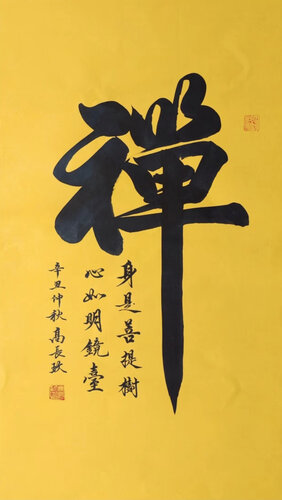 禪
身是菩提樹
心如明鏡臺
辛丑仲秋高長玖